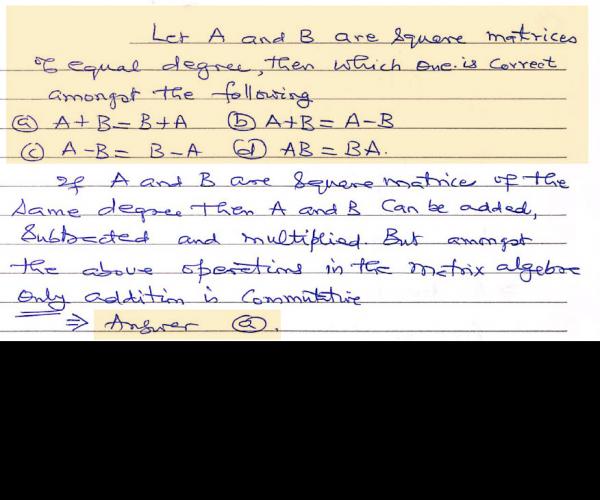 Let A and B are square matrices
of equal degree, then which one is correct
amongst the following
(a) A+B=B+A (b) A+B= A-B
(c) A-B= B-A (d) AB=BA.
If A and B are square matrice of the
same degree then A and B can be added,
subtracted and multiplied. But amongst
the above operations in the matrix algebra
only addition is commutative
⇒ Answer (a).